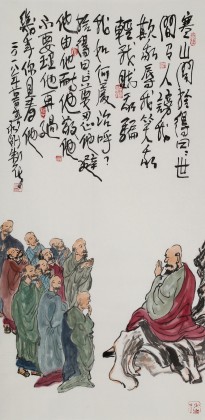 寒山問拾得曰：世
間有人謗我
欺我辱我笑我
輕我賤我騙
我如何處治乎？
拾得曰只要忍他讓
他由他耐他敬他
不要理他再過
幾年你且看他